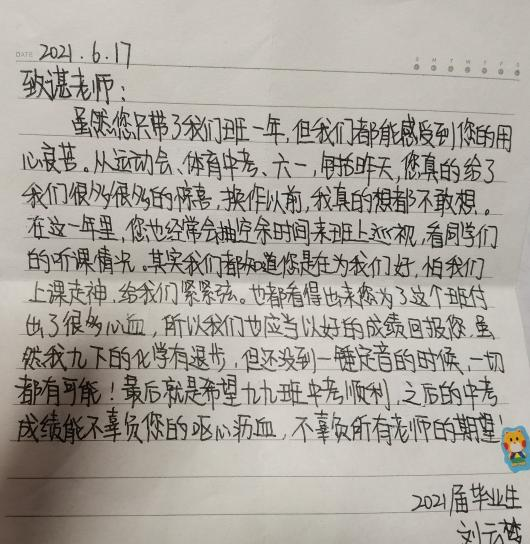 DATE 2021.6.17
S M T W T F S
致谌老师：
虽然您只带了我们班一年，但我们都能感受到您的用
心良苦。从运动会、体育中考、六一，包括昨天，您真的给了
我们很多很多的惊喜，换作以前，我真的想都不敢想。
在这一年里，您也经常会抽空余时间来班上巡视，看同学们
的听课情况。其实我们都知道您是在为我们好，怕我们
上课走神，给我们紧紧弦。也都看得出来您为了这个班付
出了很多心血，所以我们也应当以好的成绩回报您，虽
然我九下的化学有退步，但还没到一锤定音的时候，一切
都有可能！最后就是希望九九班中考顺利，之后的中考
成绩能不辜负您的呕心沥血，不辜负所有老师的期望！
2021届毕业生
刘云梦